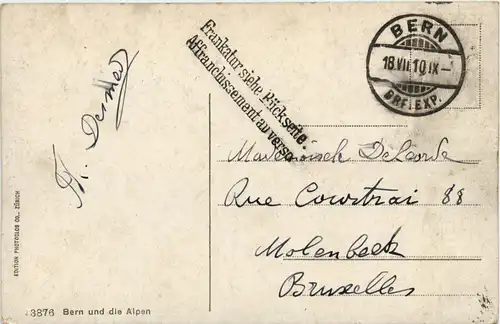 Frankatur siehe Rückseite.
Affranchissement au verso.
BERN
18.VII.10.IX-
BRF.EXP.
Rue Courtrai 88
Molenbeek
Bruxelles
EDITION PHOTOGLOB CO., ZÜRICH
3876 Bern und die Alpen